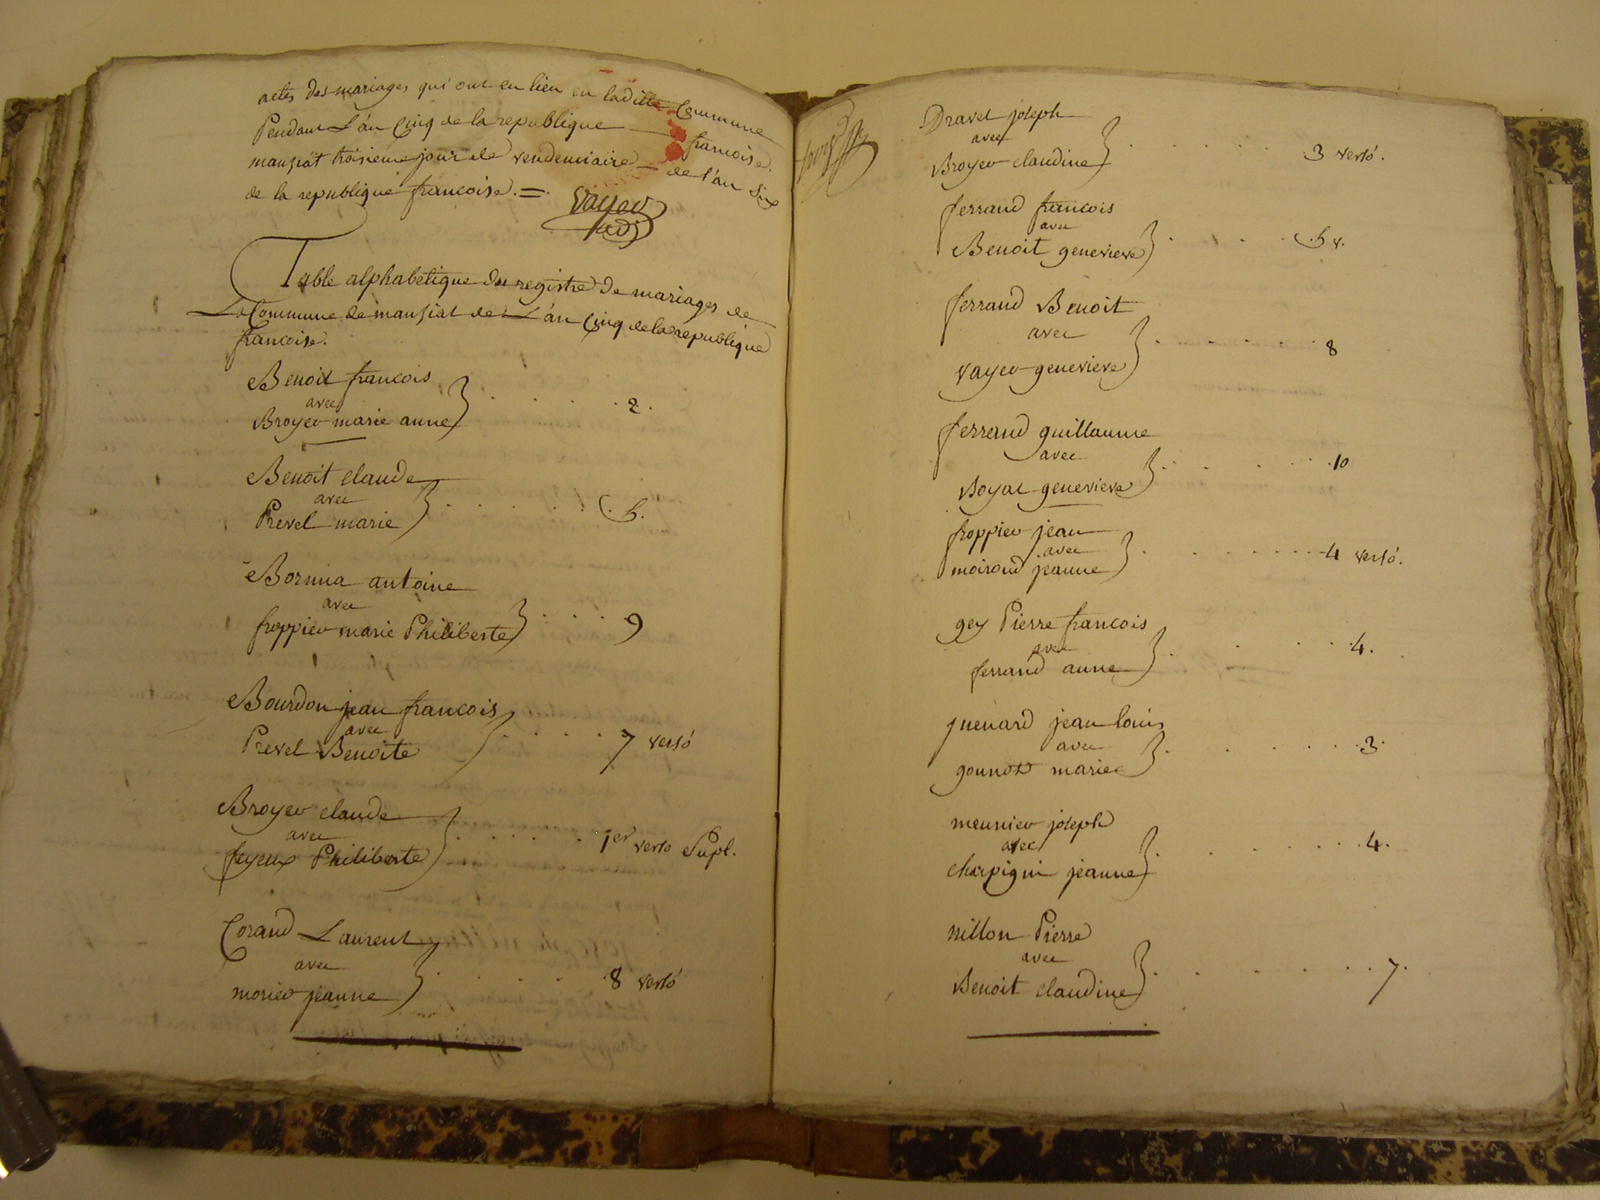 actes des mariages qui ont eu lieu en laditte Commune
Pendant L'an Cinq de la republique francoise.
mansiat troisieme jour de vendemiaire de l'an Six
de la republique francoise. =
Vayer
Table alphabetique du registre de mariages de
La Commune de mansiat de L'an Cinq de la republique
francoise.
Benoit francois
avec
Broyer marie anne
2.
Benoit claude
avec
Prevel marie
6.
Bornua antoine
avec
froppier marie Philiberte
9
Bourdon jean francois
avec
Prevel Benoite
7 versó
Broyer claude
avec
feyeux Philiberte
1er verso Supl.
Corand Laurent
avec
morier jeanne
8 versó
Dravet joseph
avec
Broyer claudine
3 versó.
ferrand francois
avec
Benoit genevieve
6 v.
ferrand Benoit
avec
vayer genevieve
8
ferrand guillaume
avec
Boyat genevieve
10
froppier jean
avec
moiroud jeanne
4 versó.
gey Pierre francois
avec
ferrand anne
4.
guenard jean louis
avec
gounot marie
3.
meunier joseph
avec
charpigni jeanne
4.
nillon Pierre
avec
Benoit claudine
7.